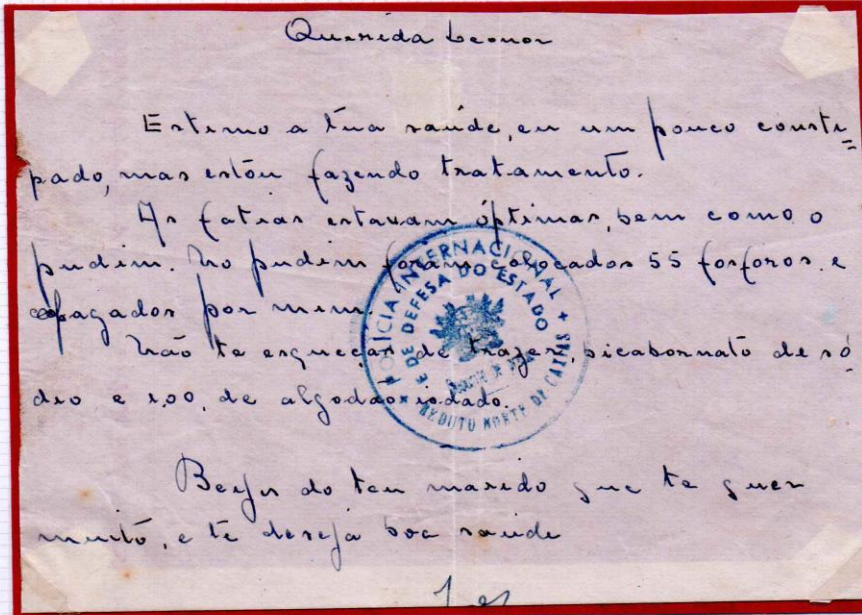 Querida Leonor
Estimo a tua saúde, eu um pouco consti=
pado, mas estou fazendo tratamento.
As fatias estavam óptimas, bem como o
pudim. No pudim foram colocados 55 fosforos e
apagados por mim.
Não te esqueças de trazer, bicabornato de só
dio e 1,00, de algodão iodado.
Beijos do teu marido que te quer
muito, e te deseja boa saude
POLÍCIA INTERNACIONAL
E DE DEFESA DO ESTADO
REDUTO NORTE DE CAXIAS